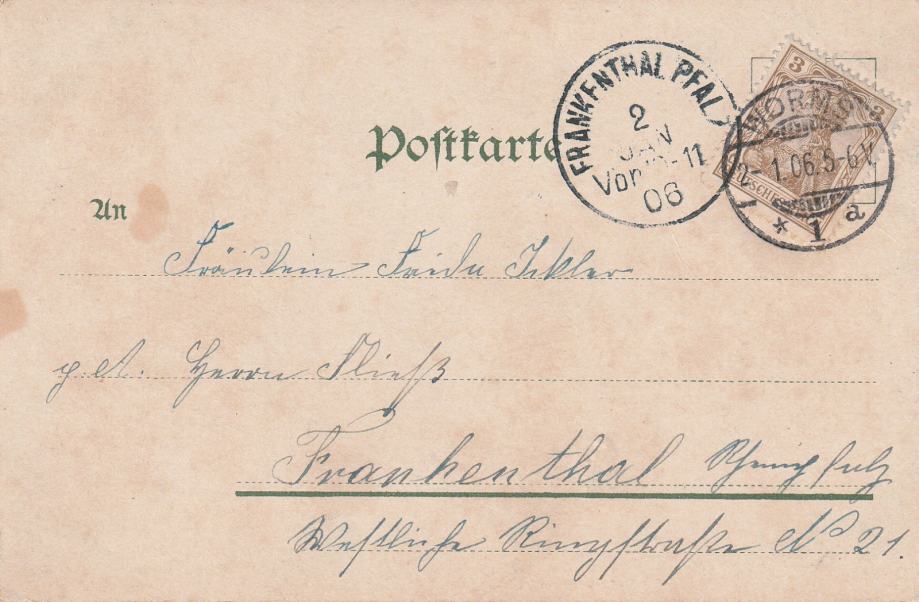 Postkarte
An
FRANKENTHAL PFALZ
2
JAN
Vor 11
06
WORMS
2 1.06.5-6V.
* 1 a
3 3
Fräulein Frida Ickler
p. A. Herrn Fließ
Frankenthal Rheinpfalz
Westliche Ringstraße No 21.